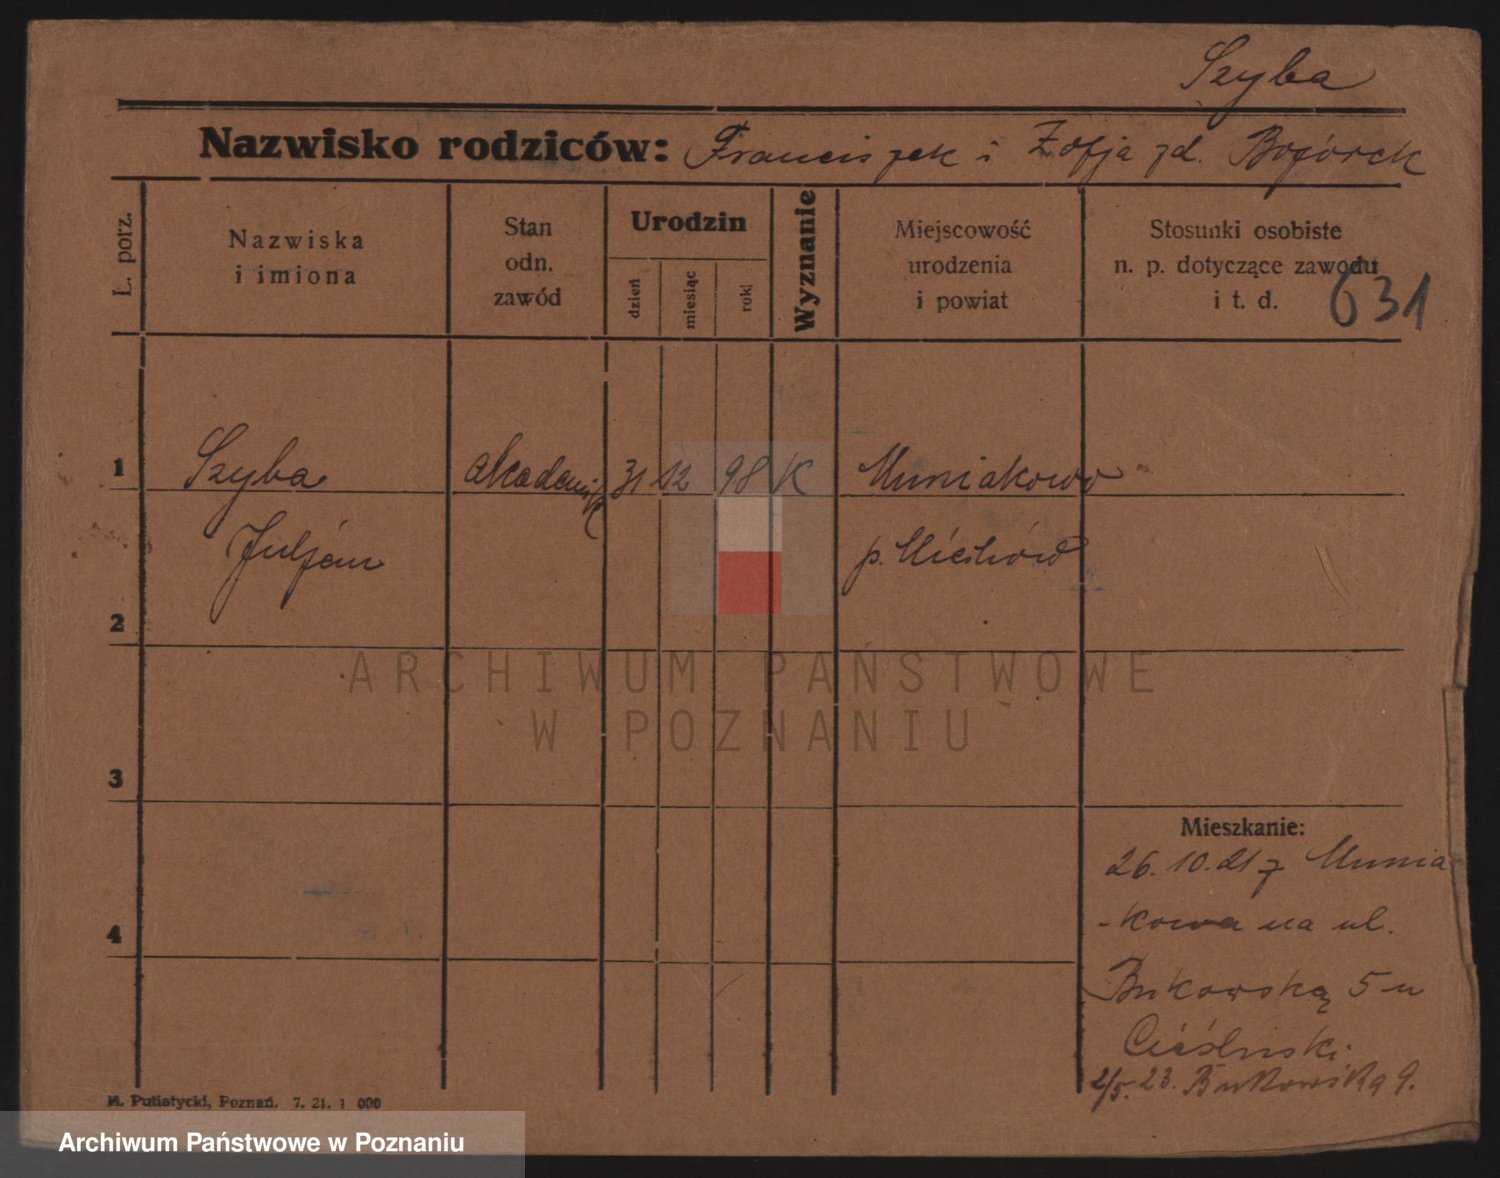 Szyba
Nazwisko rodziców: Franciszek i Zofja zd. Bogórek
L. porz.
Nazwiska
i imiona
Stan
odn.
zawód
Urodzin
dzień
miesiąc
rok
Wyznanie
Miejscowość
urodzenia
i powiat
Stosunki osobiste
n. p. dotyczące zawodu
i t. d.
631
1 Szyba akademik 31 12 98 K Muniakowo
Juljan p. Miechów
2
3
4
Mieszkanie:
26.10.21 z Munia
-kowa na ul.
Bukowską 5 u
Cieśliński
2/5.23. Bukowska 9.
M. Putiatycki, Poznań. 7. 21. 1 000
ARCHIWUM PAŃSTWOWE
W POZNANIU
Archiwum Państwowe w Poznaniu